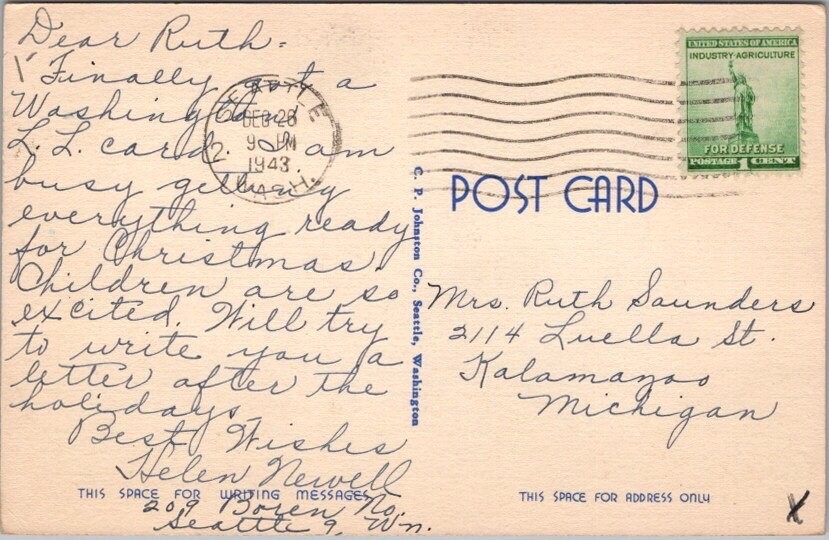 Dear Ruth -
Finally got a
Washington
L.L. card. I am
busy getting
everything ready
for Christmas.
Children are so
excited. Will try
to write you a
letter after the
holidays.
Best Wishes
Helen Newell
209 Boren No.
Seattle 9, Wn.
THIS SPACE FOR WRITING MESSAGES
SEATTLE
DEC 23
9 PM
1943
WASH.
C. P. Johnston Co., Seattle, Washington
UNITED STATES OF AMERICA
INDUSTRY·AGRICULTURE
FOR DEFENSE
POSTAGE 1 CENT
POST CARD
Mrs. Ruth Saunders
2114 Luella St.
Kalamazoo
Michigan
THIS SPACE FOR ADDRESS ONLY
X